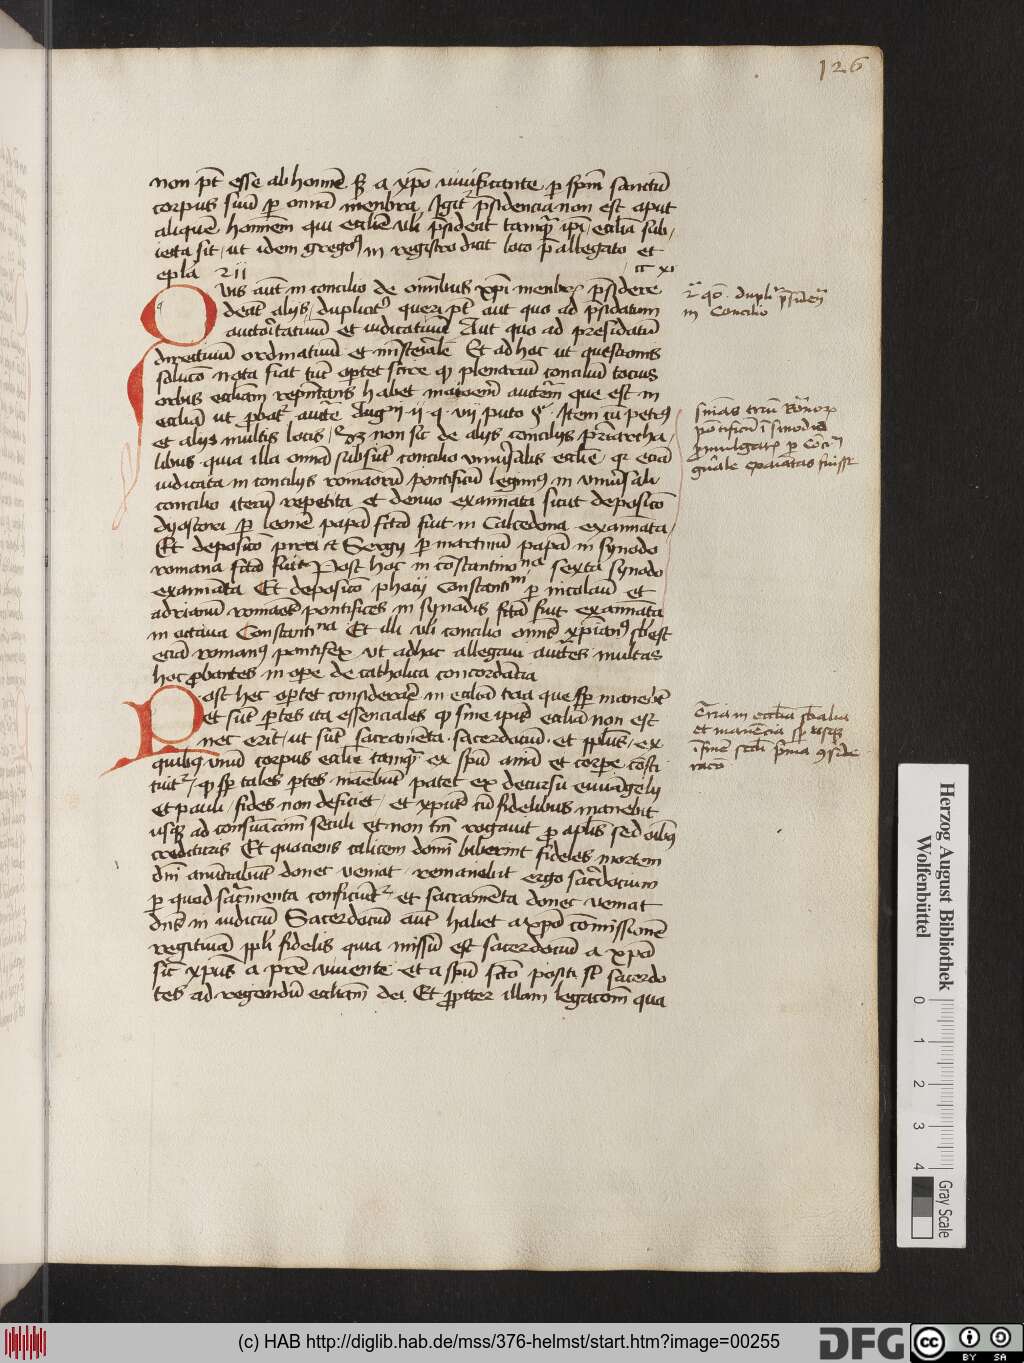 126
non pt esse ab homine sz a xpo viuificante per spm sanctu
corpus suu per omnia menbra Igitur psidencia non est aput
aliquem hominem qui ecclie vli psideat tamqr ipi ecclia sub
iecta sit ut idem gregos in registro dicit loco p allegato et
epla 211 cc xi
Uis aut in concilio de omnibus xpi menbris presidere
deat alijs dupliciter queri pt aut quo ad psidatum
auctoritatiuu et iudicatiuu Aut quo ad presidatu
directiuu ordinatiuu et misteriale Et ad hoc ut questionis
soluco nota fiat tuc oportet scire qp plenariu conciliu tocius
orbis eccliam representans habet maiorem auctem que est in
ecclia ut probatur aucte Aug ij q vij puto Item cu petrus
et alijs multis locis non sic de alijs concilijs priarcha
libus quia illa omnia subsut concilio vniuersalis ecclie et eciam
iudicata in concilijs romaoru pontificu legimus in vniuersali
concilio iteru repetita et denuo examinata sicut deposico
dyoscori per leone papa fcta fuit in Calcedona examinata
Et deposico pirri et Sergij per martinu papa in synodo
romana fcta fuit Post hoc in constantinona sexta synodo
examinata Et deposico phocij Constantim per nicolau et
adrianu romaos pontifices in synodis fcta fuit examinata
in octaua Constantina Et illi vli concilio omnis xpianus subest
eciam romanus pontifex ut ad hoc allegaui auctes multas
hoc probantes in ope de catholica concordacia
Post hec oportet considerare in ecclia tria que semper manebut
et sut partes ita essenciales qp sine ipis ecclia non est
nec erit ut sut sacramenta sacerdociu et pplus ex
quibus vnu corpus ecclie tamqr ex spu aia et corpe costi
tuitur qp semper tales partes manebut patet ex decursu euuangelij
et pauli fides non deficiet et xpus cu fidelibus manebit
usqz ad consumacom seculi et non tm rogauit pro aplis sed oibus
credituris Et quociens calicem domi biberint fideles mortem
dni anuciabut donec veniat remanebit ergo sacerdocium
per quod sacramenta conficiutur et sacramenta donec veniat
dns in iudiciu Sacerdociu aut habet a xpo comissionem
regitiuam ppli fidelis quia missu est sacerdociu a xpo
sic xpus a pre viuente et a spu scto positi sut sacerdo
tes ad regendu eccliam dei Et propter illam legacom qua
qo duplr psidetur
in Concilio
snias triu Romor
pontificu i sinodis
promulgatas per Conciliu
gnale examiatas fuisse
Tria in ecclia
et manecia semper usqz
i fine scli pma
racio
Herzog August Bibliothek
Wolfenbüttel
0 1 2 3 4
Gray Scale
(c) HAB http://diglib.hab.de/mss/376-helmst/start.htm?image=00255
DFG
cc
BY SA